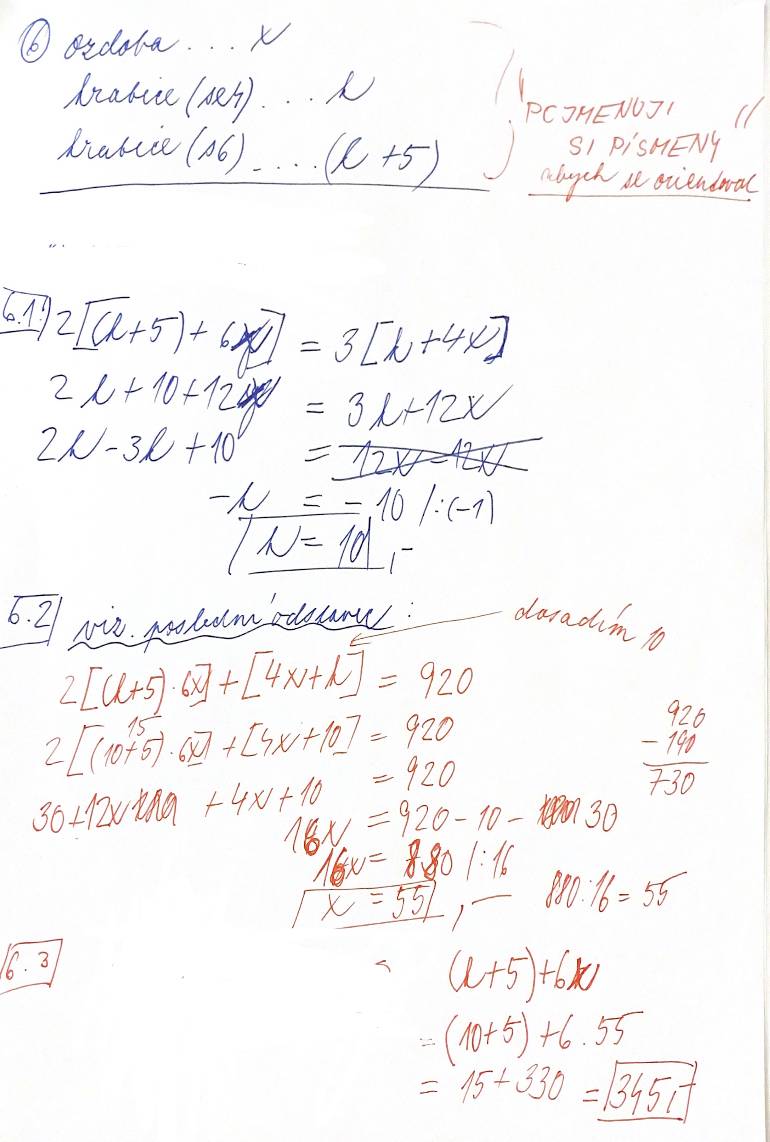 ⑥ ozdoba ... x
krabice (se 4) ... k
krabice (s 6) .... (k + 5)
"POJMENUJI
SI PÍSMENY"
abych se orientoval
6.1: 2[(k+5) + 6x] = 3[k+4x]
2k + 10 + 12x = 3k + 12x
2k - 3k + 10 = 12x - 12x
-k = -10 /:(-1)
k = 10,-
6.2 viz. poslední odstavec: dosadím 10
2[(k+5) · 6x] + [4x+k] = 920
15
2[(10+5) · 6x] + [4x+10] = 920
30 + 12x + 4x + 10 = 920
16x = 920 - 10 - 30
16x = 880 /:16
x = 55,- 880:16 = 55
920
- 190
730
6.3
(k+5) + 6x
= (10+5) + 6 . 55
= 15 + 330 = 345,-